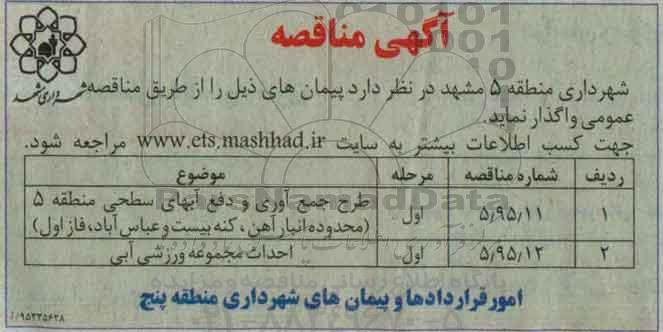 آگهی مناقصه
شهرداری مشهد
شهرداری منطقه ۵ مشهد در نظر دارد پیمان های ذیل را از طریق مناقصه
عمومی واگذار نماید.
جهت کسب اطلاعات بیشتر به سایت www.ets.mashhad.ir مراجعه شود.
ردیف شماره مناقصه مرحله موضوع
۱ ۵٫۹۵٫۱۱ اول طرح جمع آوری و دفع آبهای سطحی منطقه ۵
(محدوده انبار آهن، کنه بیست و عباس آباد، فاز اول)
۲ ۵٫۹۵٫۱۲ اول احداث مجموعه ورزشی آبی
امور قراردادها و پیمان های شهرداری منطقه پنج
/۹۵۲۲۵۶۲۸
ParsNamadData